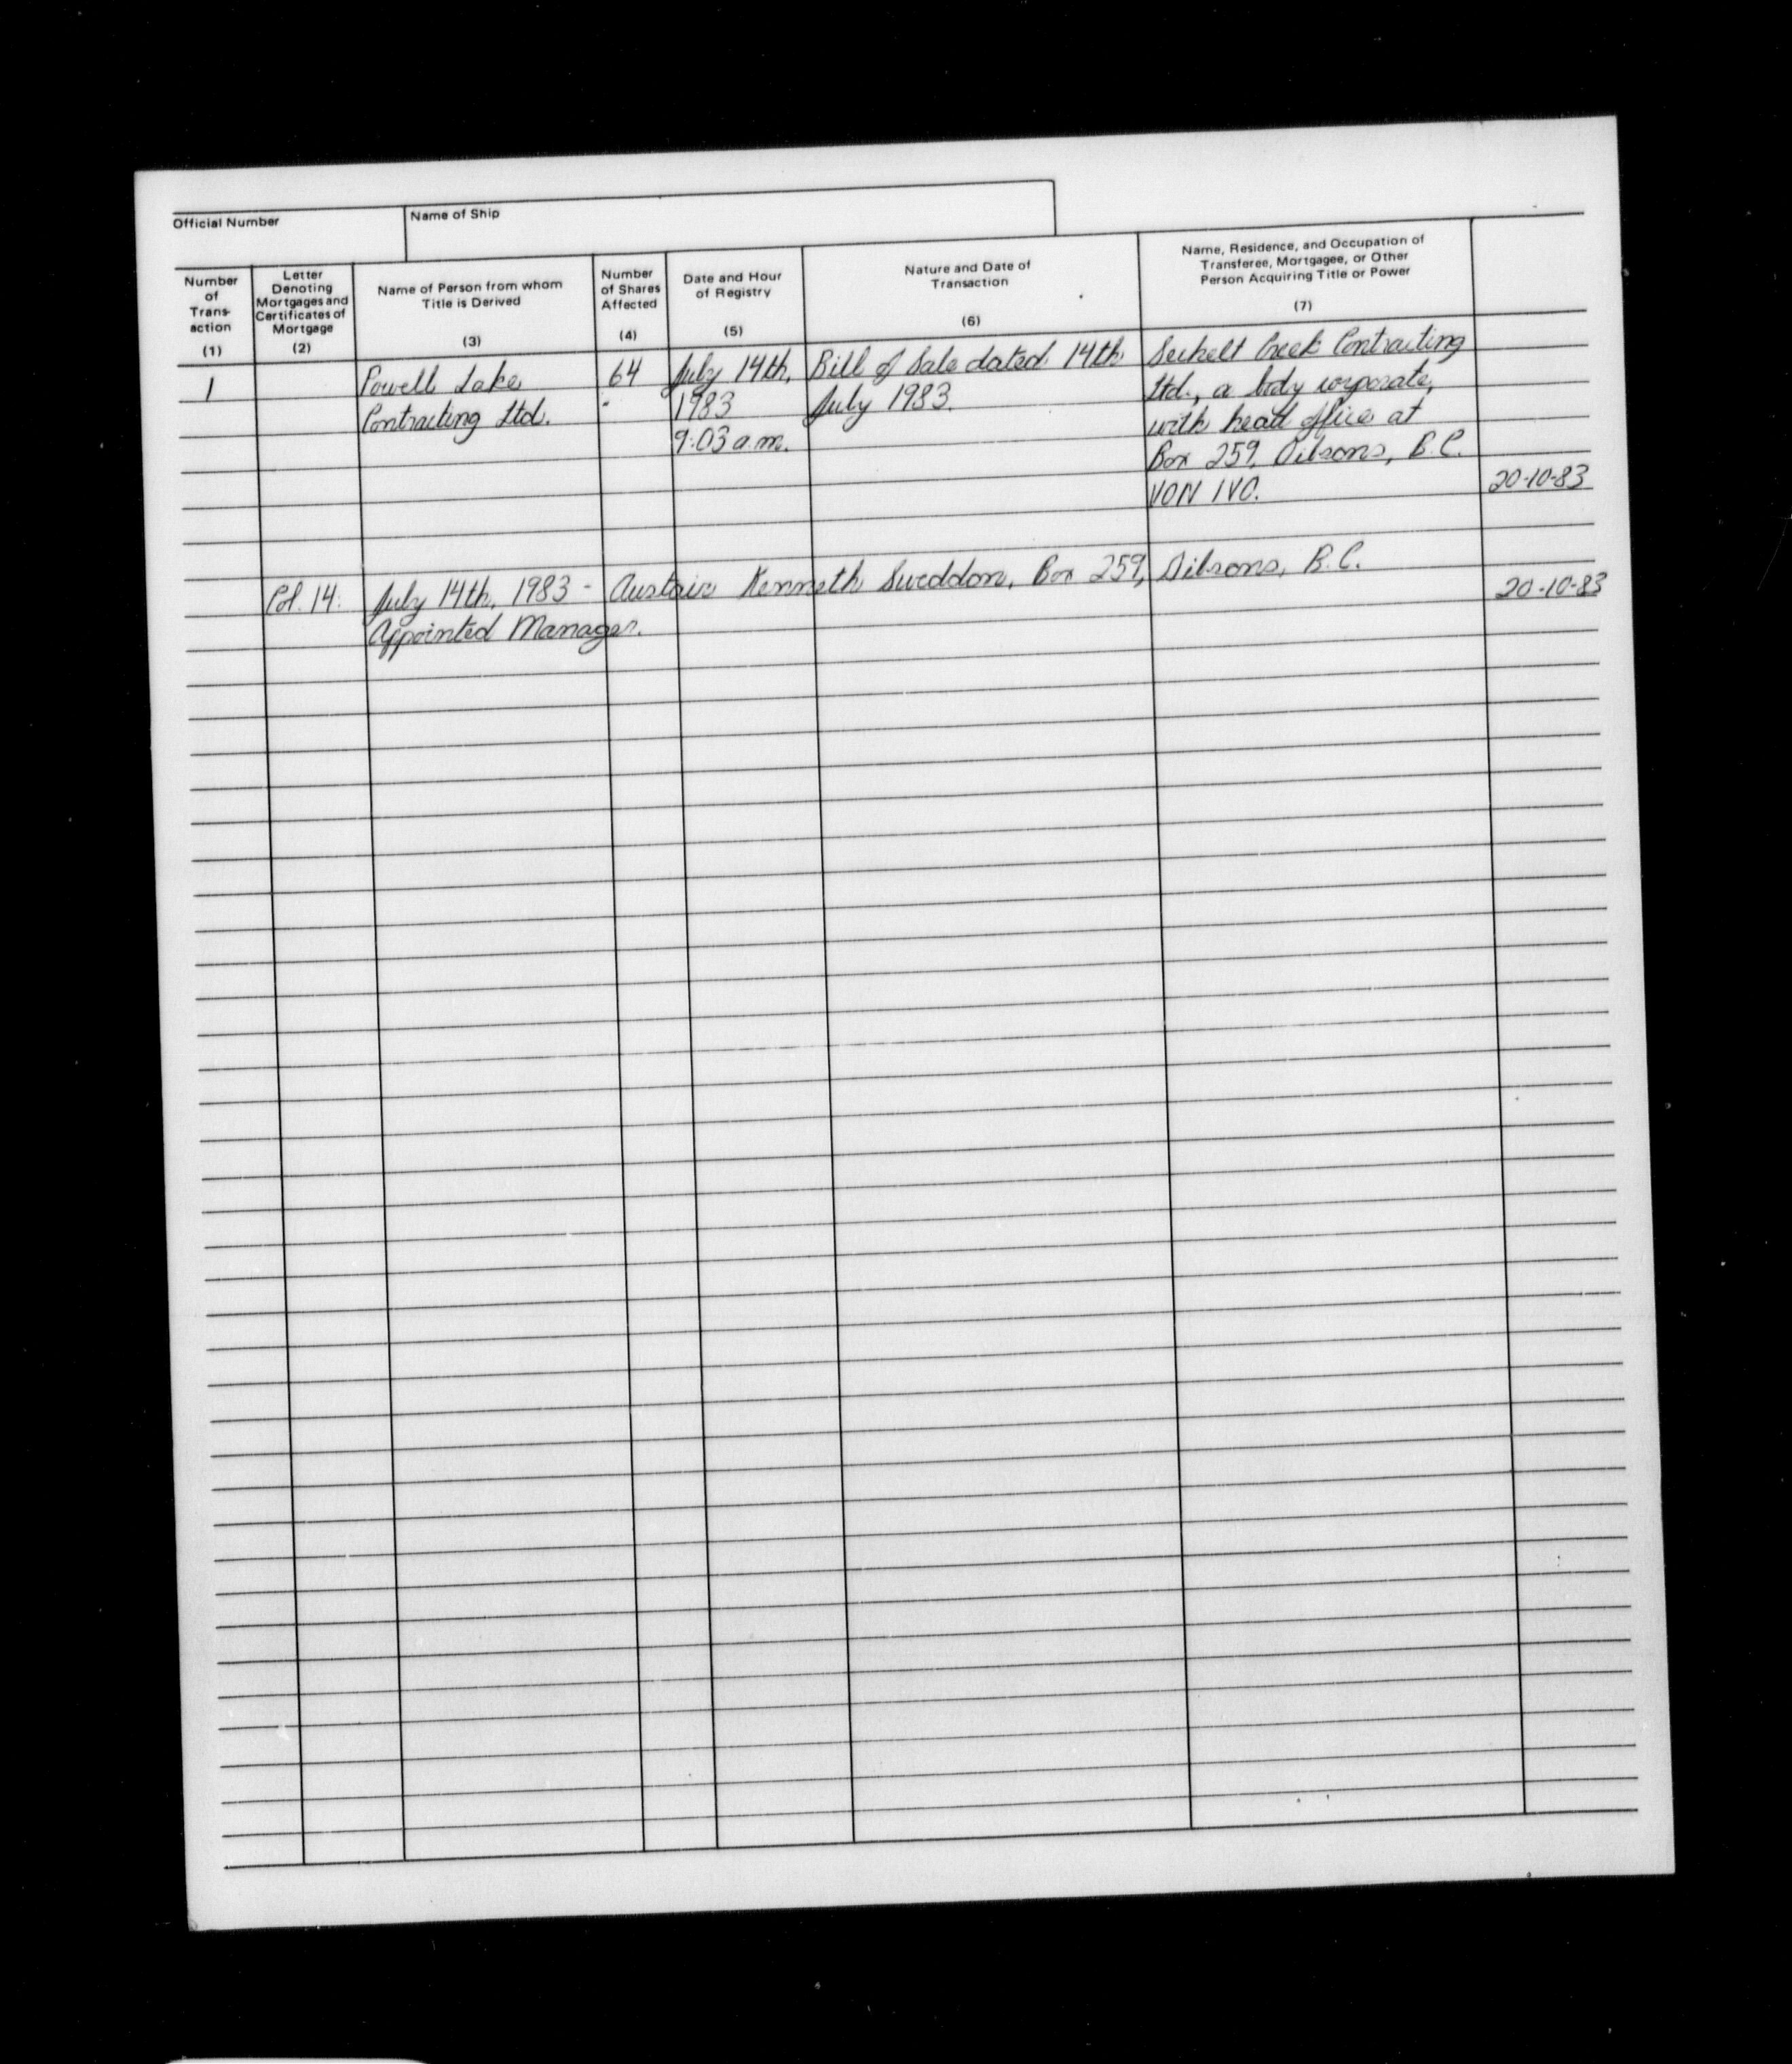 Official Number
Name of Ship
Number of Trans- action (1)
Letter Denoting Mortgages and Certificates of Mortgage (2)
Name of Person from whom Title is Derived (3)
Number of Shares Affected (4)
Date and Hour of Registry (5)
Nature and Date of Transaction (6)
Name, Residence, and Occupation of Transferee, Mortgagee, or Other Person Acquiring Title or Power (7)
1 Powell Lake 64 July 14th, Bill of Sale dated 14th Sechelt Creek Contracting
Contracting Ltd. 1983 July 1983. Ltd., a body corporate,
9:03 a.m. with head office at
Box 259, Gibsons, B.C.
V0N 1V0. 20-10-83
Col. 14: July 14th, 1983 - Kenneth Sweddon, Box 259, Gibsons, B.C. 20-10-83
Appointed Manager.